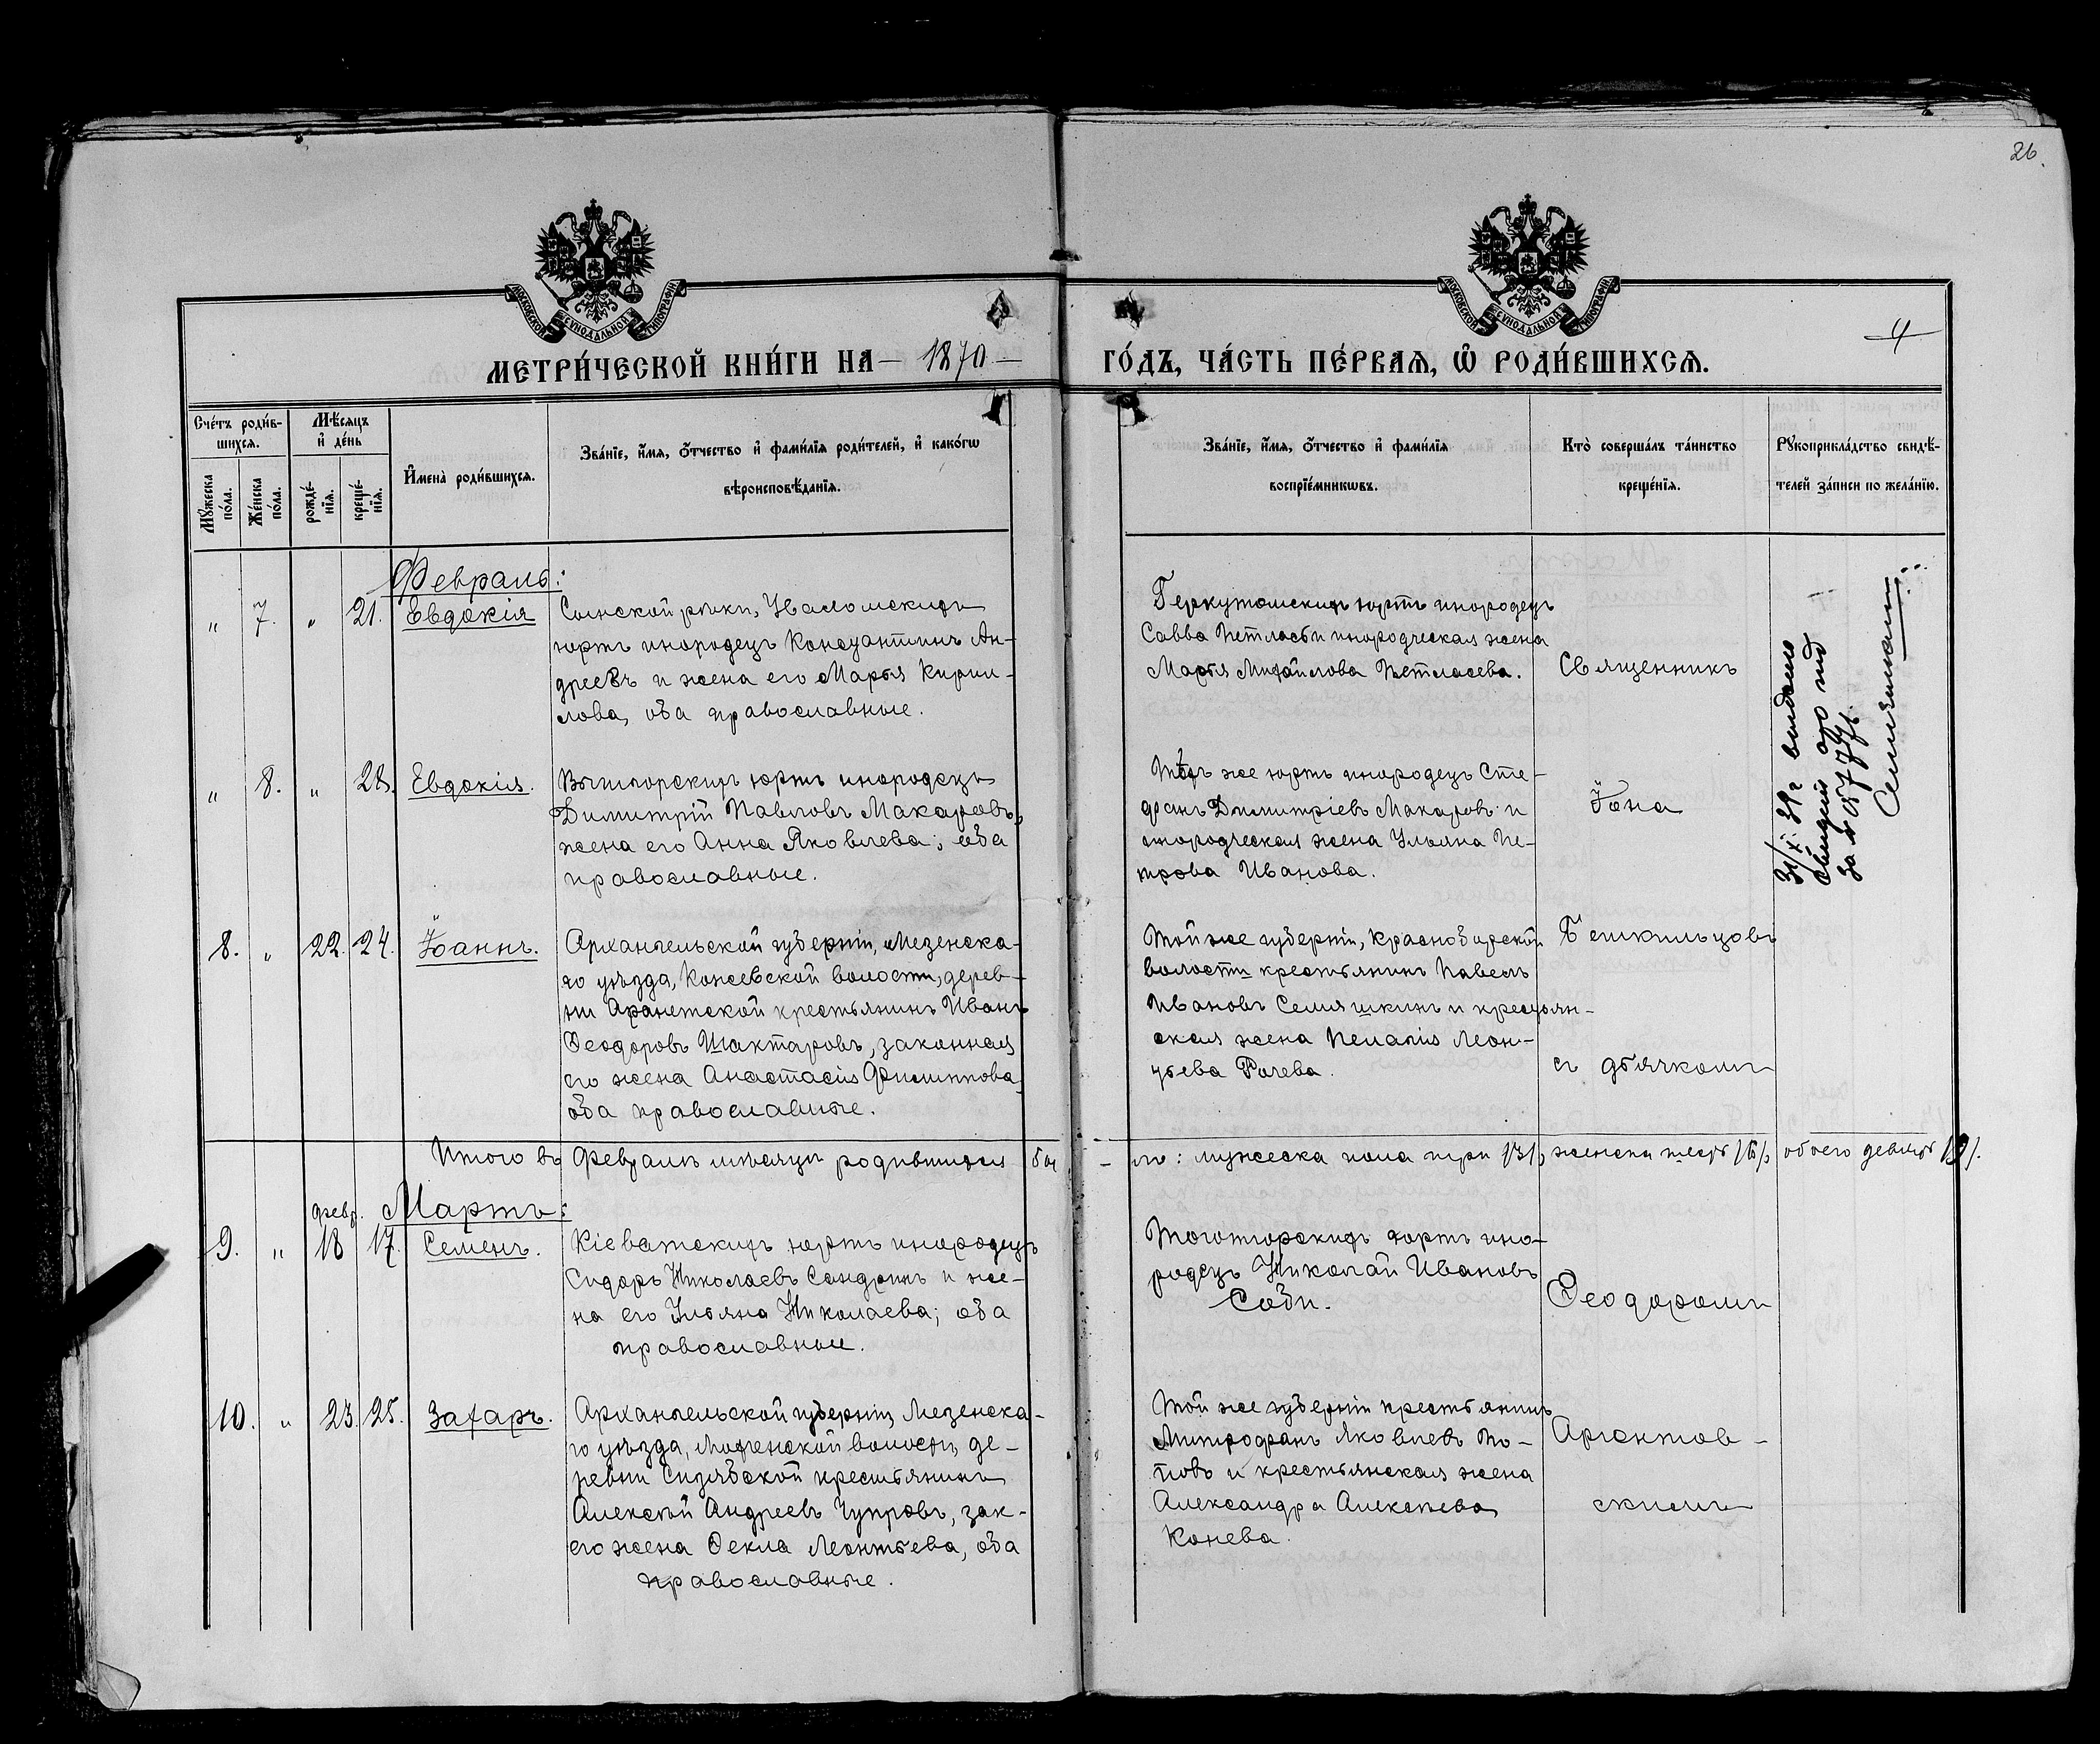 26
МОСКОВСКОЙ СѴНОДАЛЬНОЙ ТИПОГРАФІИ
МОСКОВСКОЙ СѴНОДАЛЬНОЙ ТИПОГРАФІИ
4
МЕТРИ́ЧЕСКОЙ КНИ́ГИ НА 1870 ГО́ДЪ, ЧА́СТЬ ПЕ́РВАѦ, Ѽ РОДИ́ВШИХСѦ.
Сче́тъ роди́в-
шихсѧ.
Мꙋ́жеска
по́ла.
Же́нска
по́ла.
Мѣ́сѧцъ
и҆ де́нь
рожде́-
нїѧ.
креще́-
нїѧ.
И҆мена̀ роди́вшихсѧ.
Зва́нїе, и҆́мѧ, ѻ҆́тчество и҆ фами́лїѧ роди́телей, и҆ како́гѡ
вѣроисповѣ́данїѧ.
Зва́нїе, и҆́мѧ, ѻ҆́тчество и҆ фами́лїѧ
воспрїе́мникѡвъ.
Кто̀ соверша́лъ та́инство
креще́нїѧ.
Рꙋкоприкла́дство свидѣ́-
телей за́писи по жела́нїю.
Февраль:
„ 7. „ 21. Евдокія
Сынской рѣки,
юртъ инородецъ Константинъ Ан-
дреевъ и жена его Марья Кирил-
лова, оба православные.
юртъ инородецъ
Савва и инородческая жена
Марья Михайлова
Священникъ
„ 8. „ 28. Евдокія.
юртъ инородецъ
Димитрій Павловъ Макаровъ,
жена его Анна Яковлева; оба
православные.
Тѣхъ же юртъ инородецъ Сте-
фанъ Димитріевъ Макаровъ и
инородческая жена Ульяна Пе-
трова Иванова.
Іона
8. „ 22. 24. Іоаннъ.
Архангельской губерніи, Мезенска-
го уѣзда, волости, дерев-
ни крестьянинъ Иванъ
Феодоровъ законная
его жена Анастасія Филиппова,
оба православные.
Той же губерніи, Красноборской
волости крестьянинъ Павелъ
Ивановъ Семяшкинъ и крестьян-
ская жена Пелагія Леон-
тьева Рочева.
Бешкильцовъ
съ дьячкомъ
выдано
за № 577
Итого въ Февралѣ мѣсяцѣ родившихся бы-
ло: мужеска пола три /3/, женска шесть /6/, обоего девять /9/.
Мартъ:
февр.
9. „ 18 17. Семенъ.
юртъ инородецъ
Сидоръ Николаевъ Сандринъ и же-
на его Ульяна Николаева; оба
православные.
юртъ ино-
родецъ Николай Ивановъ
Феодоромъ
10. „ 23. 25. Захаръ.
Архангельской губерніи, Мезенска-
го уѣзда, волости, де-
ревни Сизябской крестьянинъ
Алексѣй Андреевъ Чупровъ, зак-
его жена Фекла Леонтьева, оба
православные.
Той же губерніи крестьянинъ
Митрофанъ Яковлевъ По-
повъ и крестьянская жена
Александра Алексѣева
Конева.
Аргентов-
скимъ